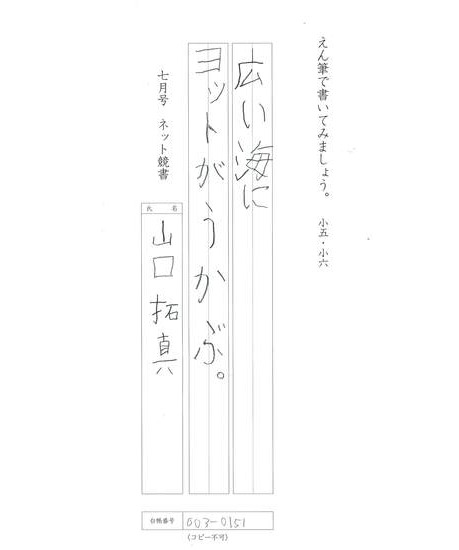 えん筆で書いてみましょう。 小五・小六
広い海に
ヨットがうかぶ。
七月号 ネット競書
氏名
山口拓真
台帳番号 003-0151
(コピー不可)